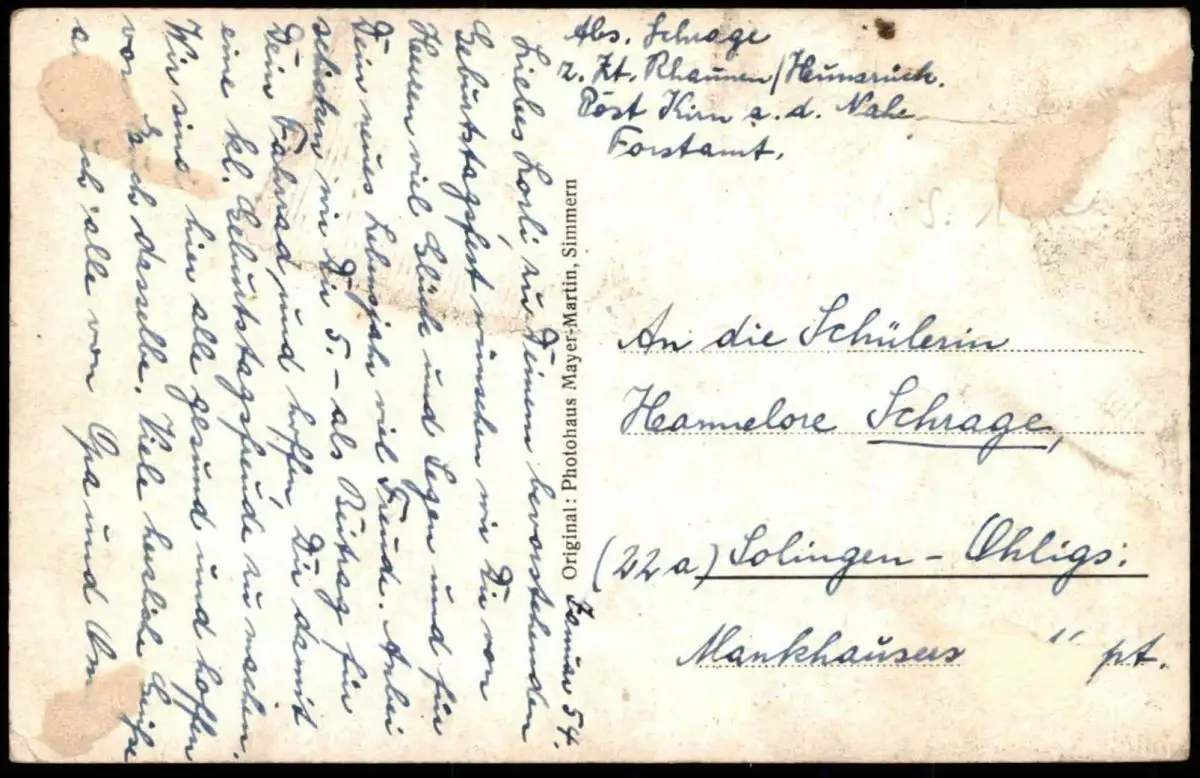 Abs. Schrage
z. Zt. Rhaunen/Hunsrück.
Post Kirn a. d. Nahe
Forstamt.
Januar 54.
Liebes Lorli, zu Deinem bevorstehenden
Geburtstagsfest wünschen wir Dir von
Herzen viel Glück und Segen und für
Dein neues Lebensjahr viel Freude. Anbei
schicken wir Dir 5.- als Beitrag für
Dein Fahrrad, und hoffen, Dir damit
eine kl. Geburtstagsfreude zu machen.
Wir sind hier alle gesund und hoffen
von Euch dasselbe. Viele herzliche Grüße
alle von Opa und Oma
Original: Photohaus Mayer-Martin, Simmern
An die Schülerin
Hannelore Schrage,
(22a) Solingen-Ohligs:
Mankhauser pt.